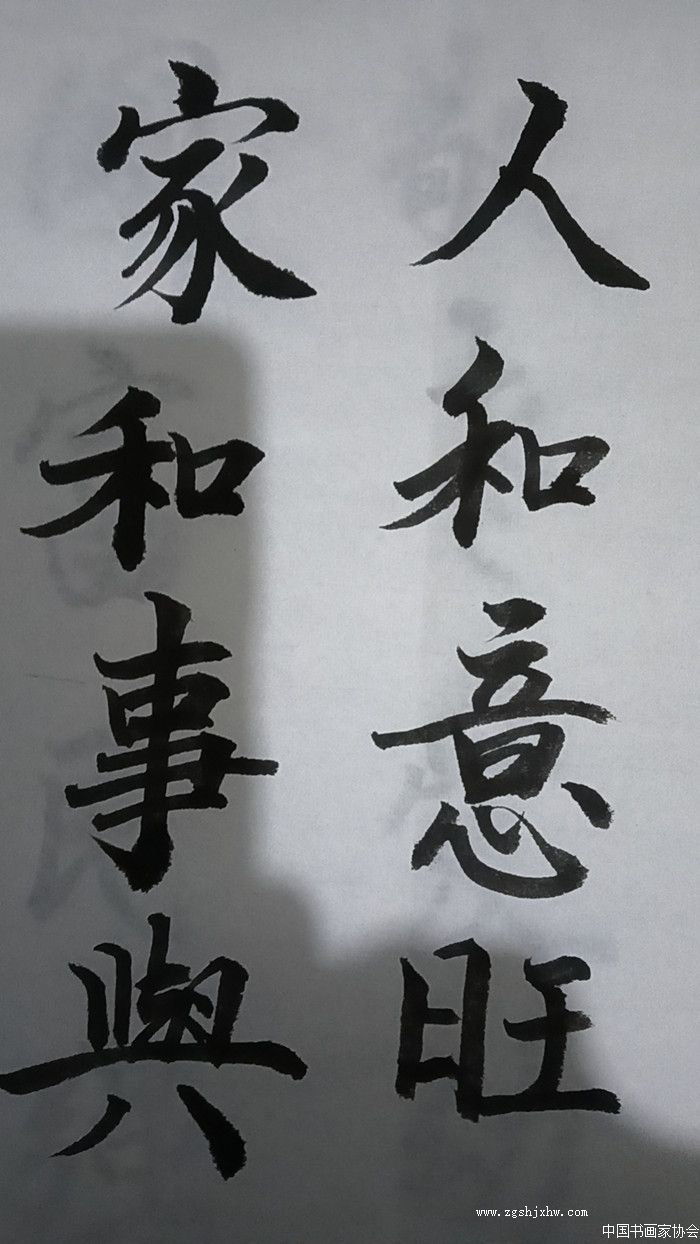 人和意旺
家和事與
www.zgshjxhw.com
中国书画家协会